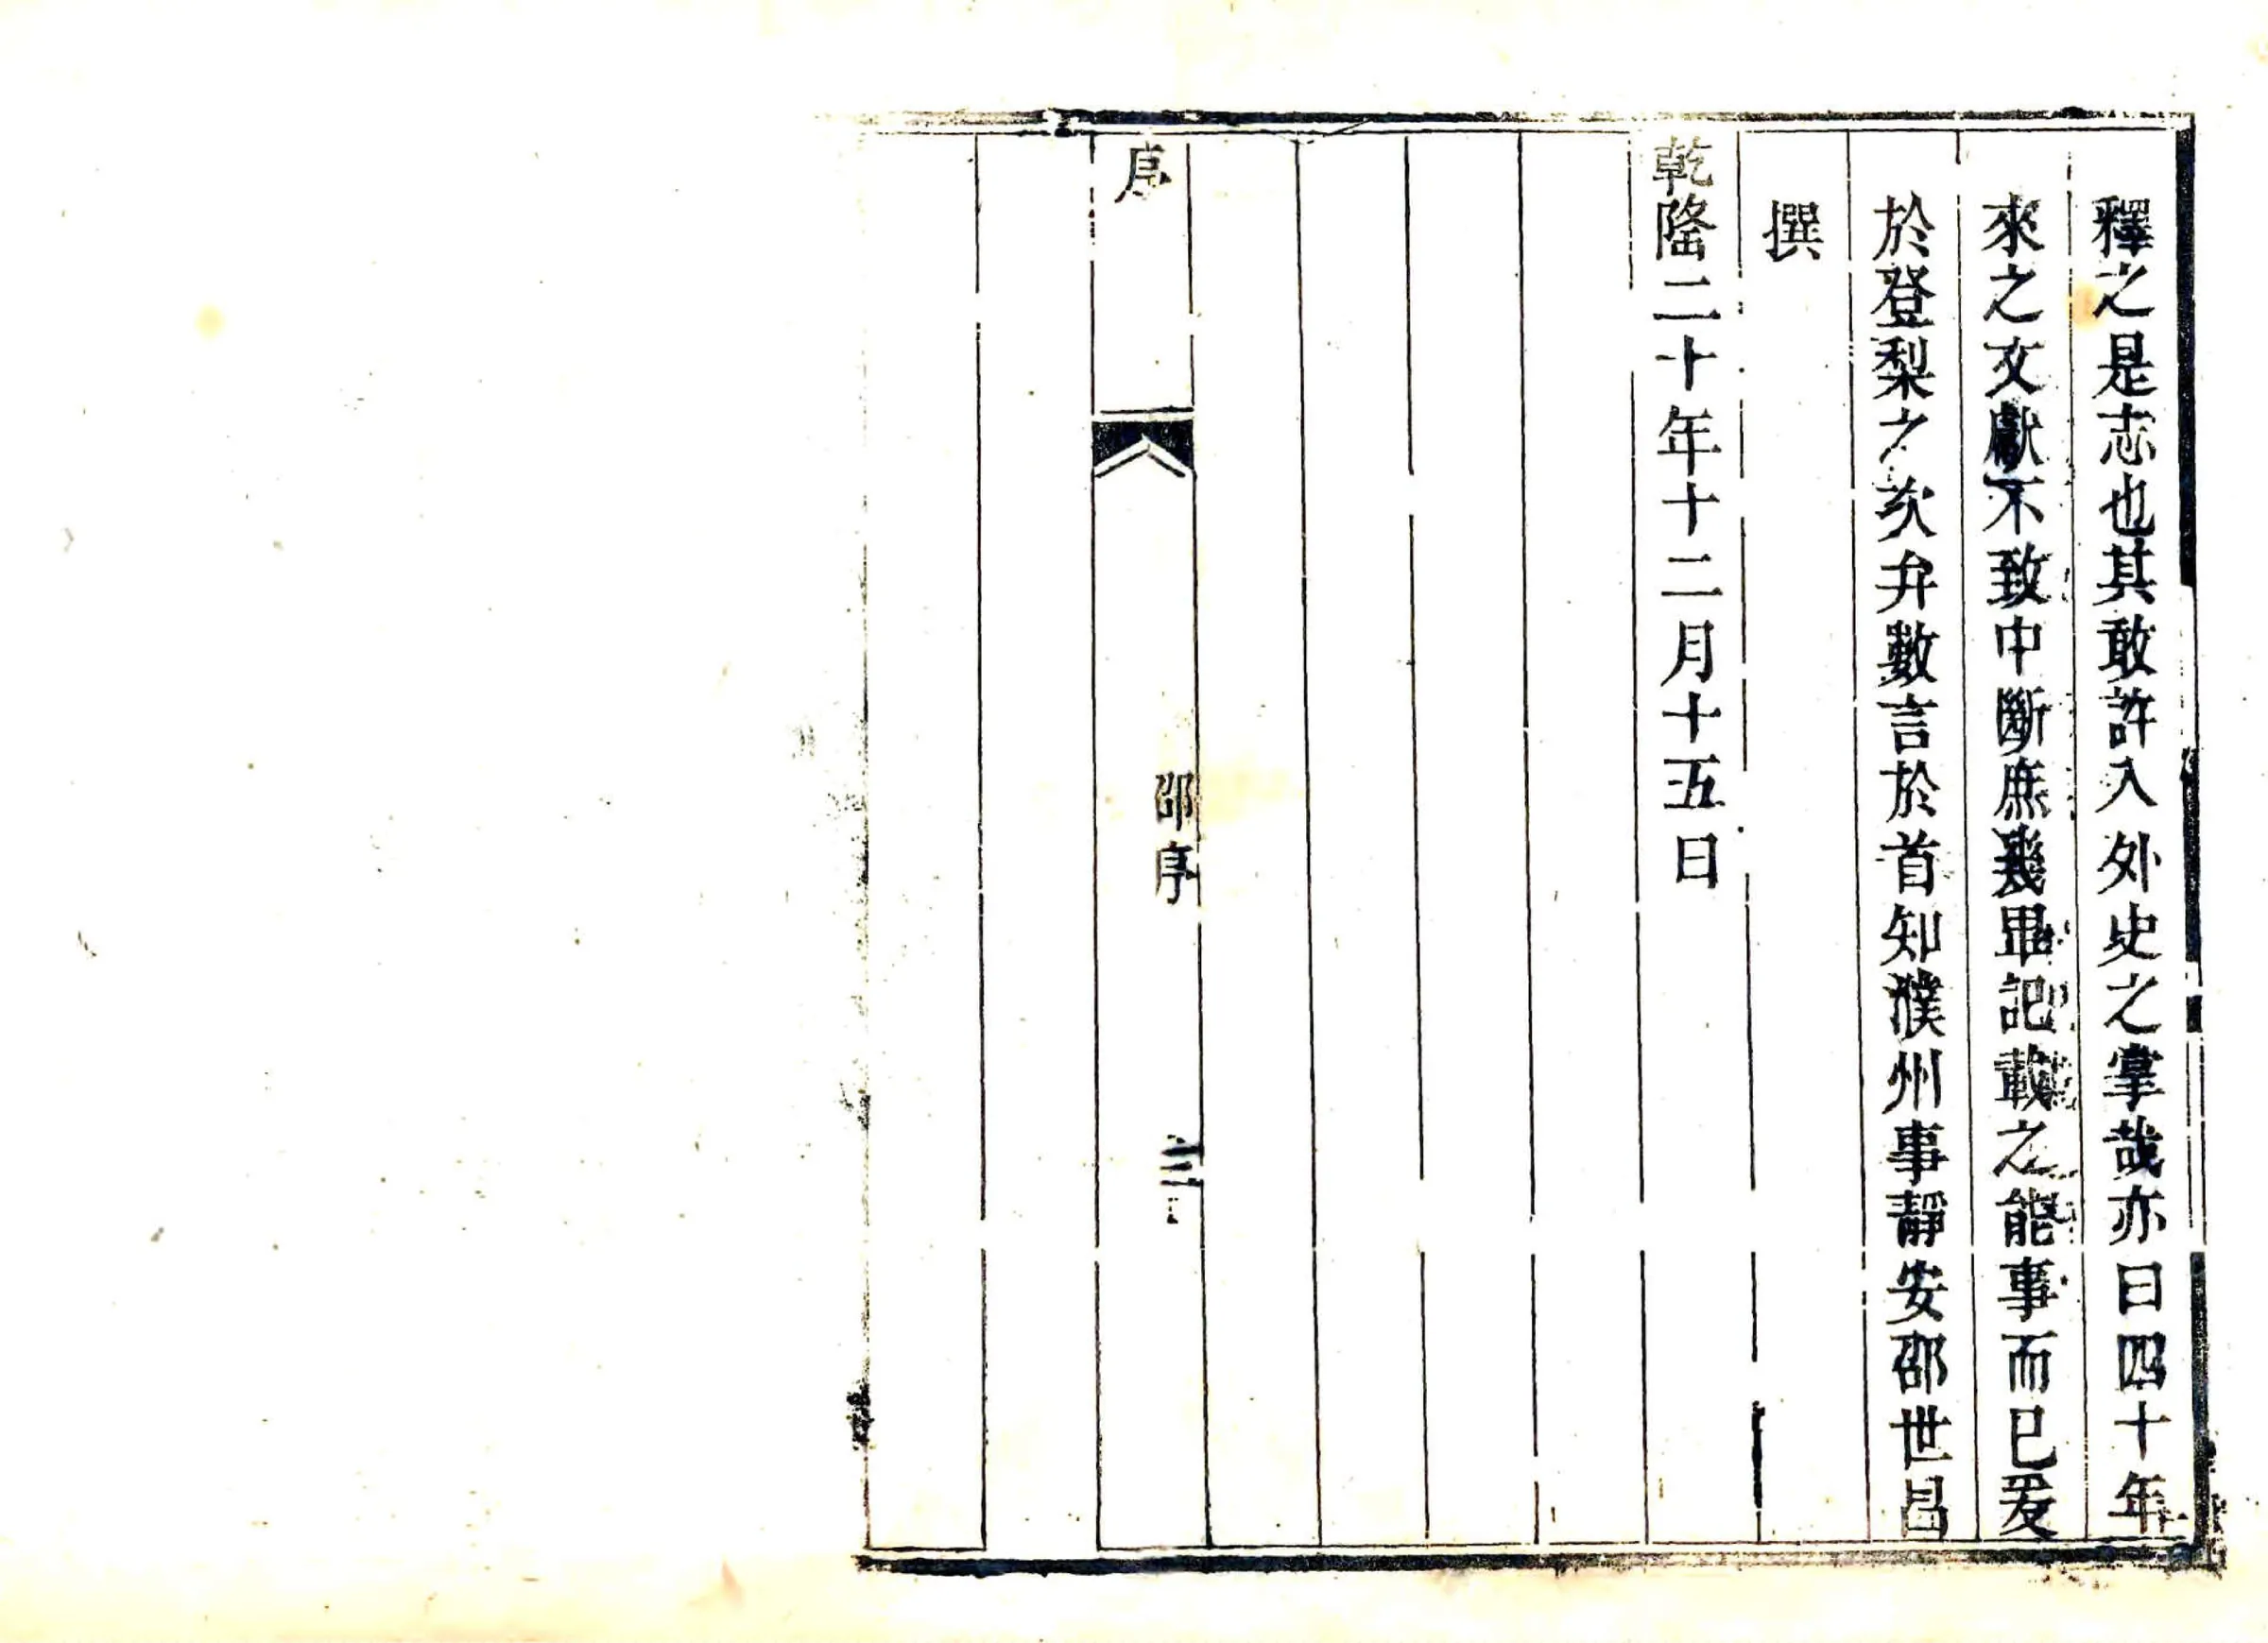 釋之是志也其敢許入外史之掌哉亦曰四十年
來之文獻不致中斷庶幾畢記載之能事而已爰
於登梨之次弁數言於首知濮州事靜安邵世昌
撰
乾隆二十年十二月十五日
序
邵序
三